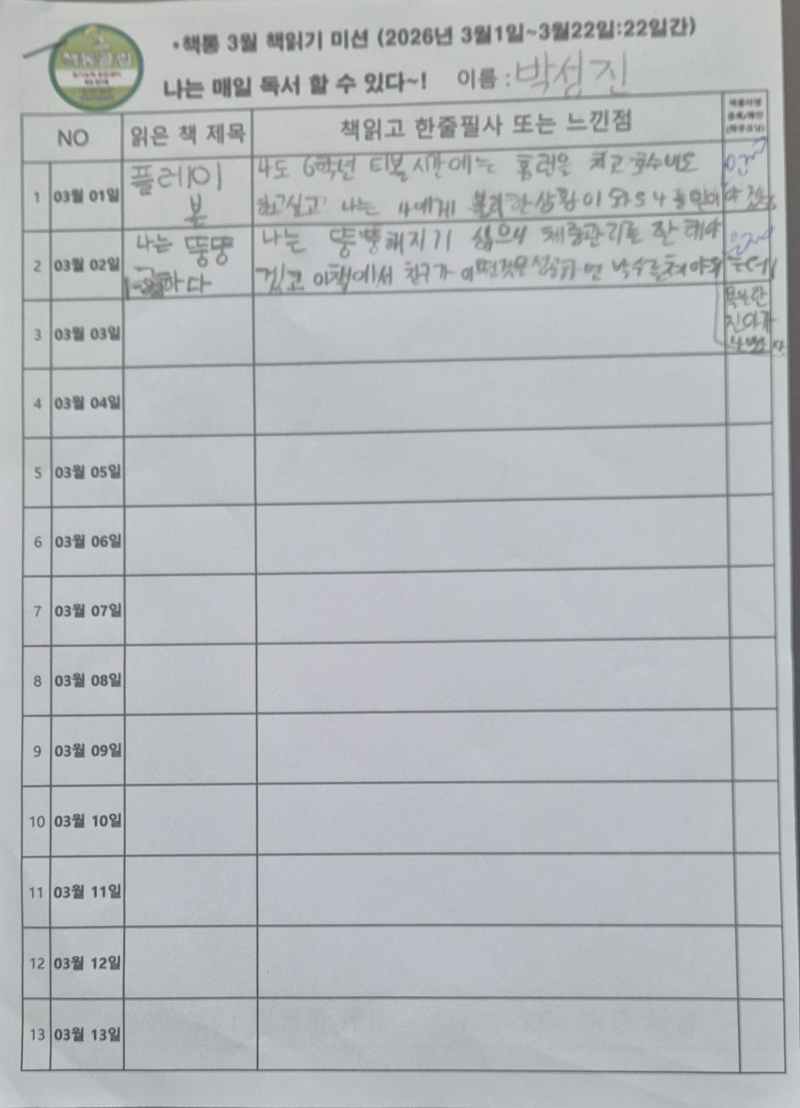 책통클럽
•책통 3월 책읽기 미션 (2026년 3월1일~3월22일:22일간)
나는 매일 독서 할 수 있다~! 이름 : 박성진
NO 읽은 책 제목 책읽고 한줄필사 또는 느낀점
1 03월 01일 플레이 볼
나도 6학년 티볼 시간에는 홈런을 치고 호수비도
하고싶고 나는 상황이
2 03월 02일 나는 뚱뚱하다
나는 뚱뚱해지기 싫으니 체중관리를 잘 해야
겠고 이책에서 친구가
3 03월 03일
4 03월 04일
5 03월 05일
6 03월 06일
7 03월 07일
8 03월 08일
9 03월 09일
10 03월 10일
11 03월 11일
12 03월 12일
13 03월 13일